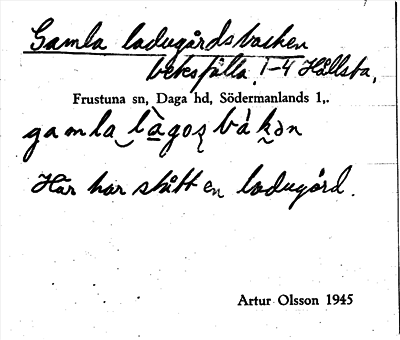 Gamla ladugårdsbacken
bebosfälla. 1-4 Hållsta,
Frustuna sn, Daga hd, Södermanlands l,.
gamla làgoʂ bákən
Här har stått en ladugård.
Artur Olsson 1945